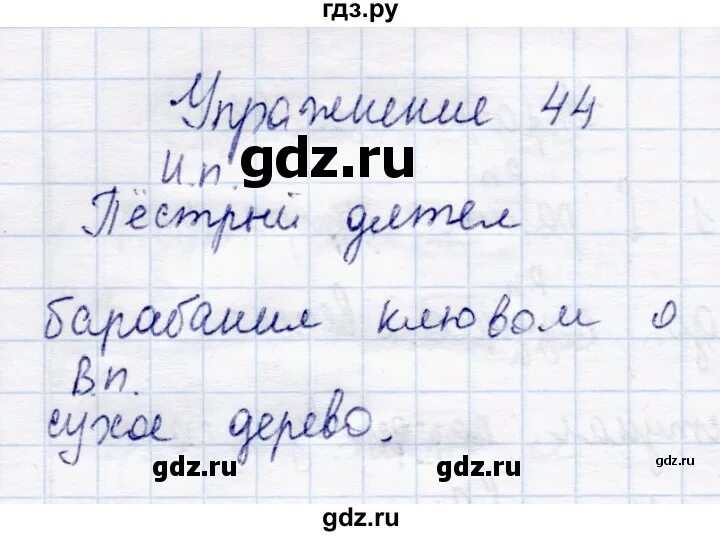 гдз.ру
Упражнение 44
И.п.
gdz.ru
Пёстрый дятел
барабанил клювом о
В.п.
сухое дерево.
gdz.ru gdz.ru gdz.ru
gdz.ru